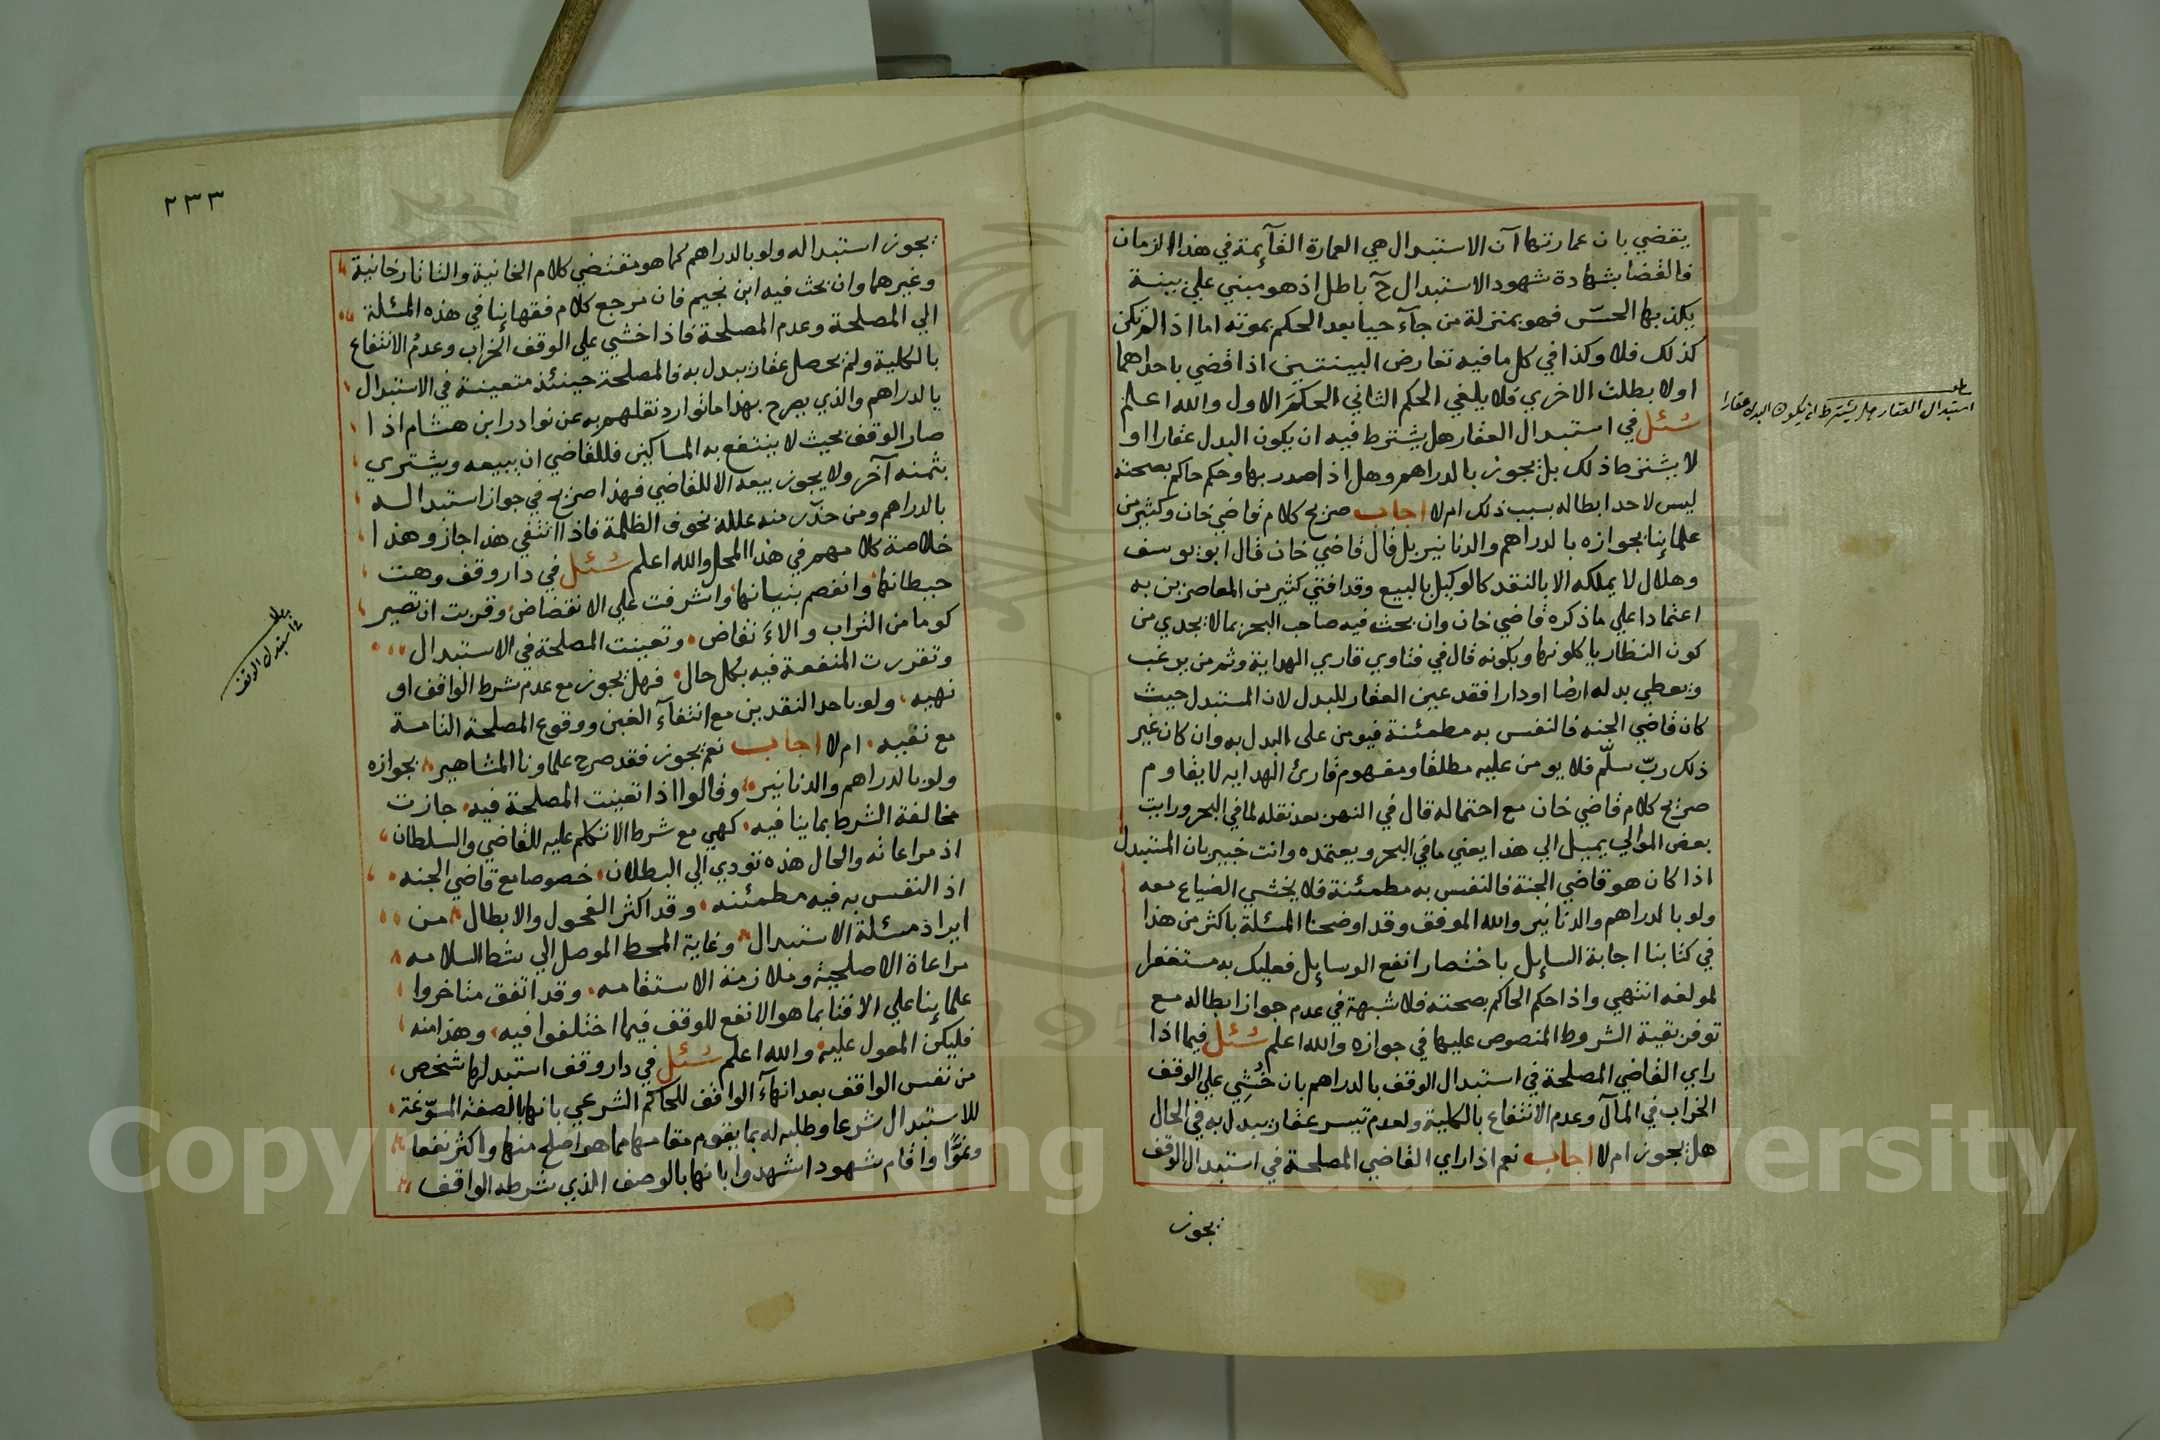 يقضي بان عمارتها آن الاستبدال هي العمارة القآئمة في هذا الزمان
فالقضا بشهادة شهود الاستبدال ح باطل اذ هو مبني علي بينة
يكذبها الحسّ فهو بمنزلة من جآء حيا بعد الحكم بموته اما اذا لم تكن
كذلك فلا وكذا في كل ما فيه تعارض البينتين اذا قضي باحداهما
اولا بطلت الاخري فلا يلغي الحكم الثاني الحكم الاول والله اعلم
سئل في استبدال العقار هل يشترط فيه ان يكون البدل عقارا او
لا يشترط ذلك بل يجوز بالدراهم وهل اذا صدر بها وحكم حاكم بصحته
ليس لاحد ابطاله بسبب ذلك ام لا اجاب صريح كلام قاضي خان وكثير من
علمائنا بجوازه بالدراهم والدنانير بل قال قاضي خان قال ابو يوسف
وهلال لا يملكه الا بالنقد كالوكيل بالبيع وقد افتي كثير من المعاصرين به
اعتمادا علي ما ذكره قاضي خان وان بحث فيه صاحب البحر بما لا يجدي من
كون النظار ياكلونها وبكونه قال في فتاوي قاري الهداية وثم من يرغب
ويعطي بدله ارضا او دارا فقد عين العقار للبدل لان المستبدل حيث
كان قاضي الجنه فالنفس به مطمئنة فيومن على البدل به وان كان غير
ذلك ربّ سلّم فلا يومن عليه مطلقا ومفهوم قارئ الهدايه لا يقاوم
صريح كلام قاضي خان مع احتماله قال في النهر بعد نقله لما في البحر ورايت
بعض الموالي يميل الي هذا يعني ما في البحر ويعتمده وانت خبير بان المستبدل
اذا كان هو قاضي الجنة فالنفس به مطمئنة فلا يخشي الضياع معه
ولو بالدراهم والدنانير والله الموفق وقد اوضحنا المسئلة باكثر من هذا
في كتابنا اجابة السايل باختصار انفع الوسايل فعليك به مستغفرا
لمولفه انتهي واذا حكم الحاكم بصحته فلا شبهة في عدم جواز ابطاله مع
توفر بقية الشروط المنصوص عليها في جوازه والله اعلم سئل فيما اذا
راي القاضي المصلحة في استبدال الوقف بالدراهم بان خُشِي علي الوقف
الخراب في المآل وعدم الانتفاع بالكلية ولعدم تيسر عقار يبدل به في الحال
هل يجوز ام لا اجاب نعم اذا راي القاضي المصلحة في استبدال الوقف
يجوز
استبدال العقار هل يشترط ان يكون البدل عقارا
٢٣٣
يجوز استبداله ولو بالدراهم كما هو مقتضي كلام الخانية والتاتارخانية
وغيرهما وان بحث فيه ابن نجيم فان مرجع كلام فقهائنا في هذه المسئلة
الي المصلحة وعدم المصلحة فاذا خشي علي الوقف الخراب وعدم الانتفاع
بالكلية ولم يحصل عقار يبدل به فالمصلحة حينئذ متعينة في الاستبدال
بالدراهم والذي يصرح بهذا ما توارد نقلهم به عن نوادر ابن هشام اذا
صار الوقف بحيث لا ينتفع به المساكين فللقاضي ان يبيعه ويشتري
بثمنه آخر ولا يجوز بيعه الا للقاضي فهذا صريح في جواز استبداله
بالدراهم ومن حذّر منه علله بخوف الظلمة فاذا انتفي هذا جاز وهذا
خلاصة كلامهم في هذا المحل والله اعلم سئل في دار وقف وهت
حيطانها وانفصم بنيانها واشرفت علي الانقضاض وقربت ان تصير
كوما من التراب والانقاض وتعينت المصلحة في الاستبدال
وتقررت المنفعة فيه بكل حال فهل يجوز مع عدم شرط الواقف او
نهيه ولو باحد النقدين مع انتفآء الغبن ووقوع المصلحة التامة
مع نفيه ام لا اجاب نعم يجوز فقد صرح علماونا المشاهير بجوازه
ولو بالدراهم والدنانير وقالوا اذا تعينت المصلحة فيه جازت
مخالفة الشرط بما ينافيه كهي مع شرط الا تكلم عليه للقاضي والسلطان
اذ مراعاته والحال هذه تؤدي الي البطلان خصوصا مع قاضي الجنه
اذ النفس به فيه مطمئنه وقد اكثر الفحول والابطال من
ايراد مسئلة الاستبدال وغاية المحط الموصل الي شط السلامه
مراعاة الاصلحية وملازمة الاستقامه وقد اتفق متاخروا
علمائنا علي الافتا بما هو الانفع للوقف فيما اختلفوا فيه وهذا منه
فليكن المعول عليه والله اعلم سئل في دار وقف استبدلها شخص
من نفس الواقف بعد انهآء الواقف للحاكم الشرعي بانها بالصفة المسوّغة
للاستبدال شرعا وطلبه له بما يقوم مقامها مما هو اصلح منها واكثر نفعا
ونموًّا واقام شهودا شهدوا بانها بالوصف الذي شرطه الواقف
في استبدال الوقف
Copyright © King Saud University